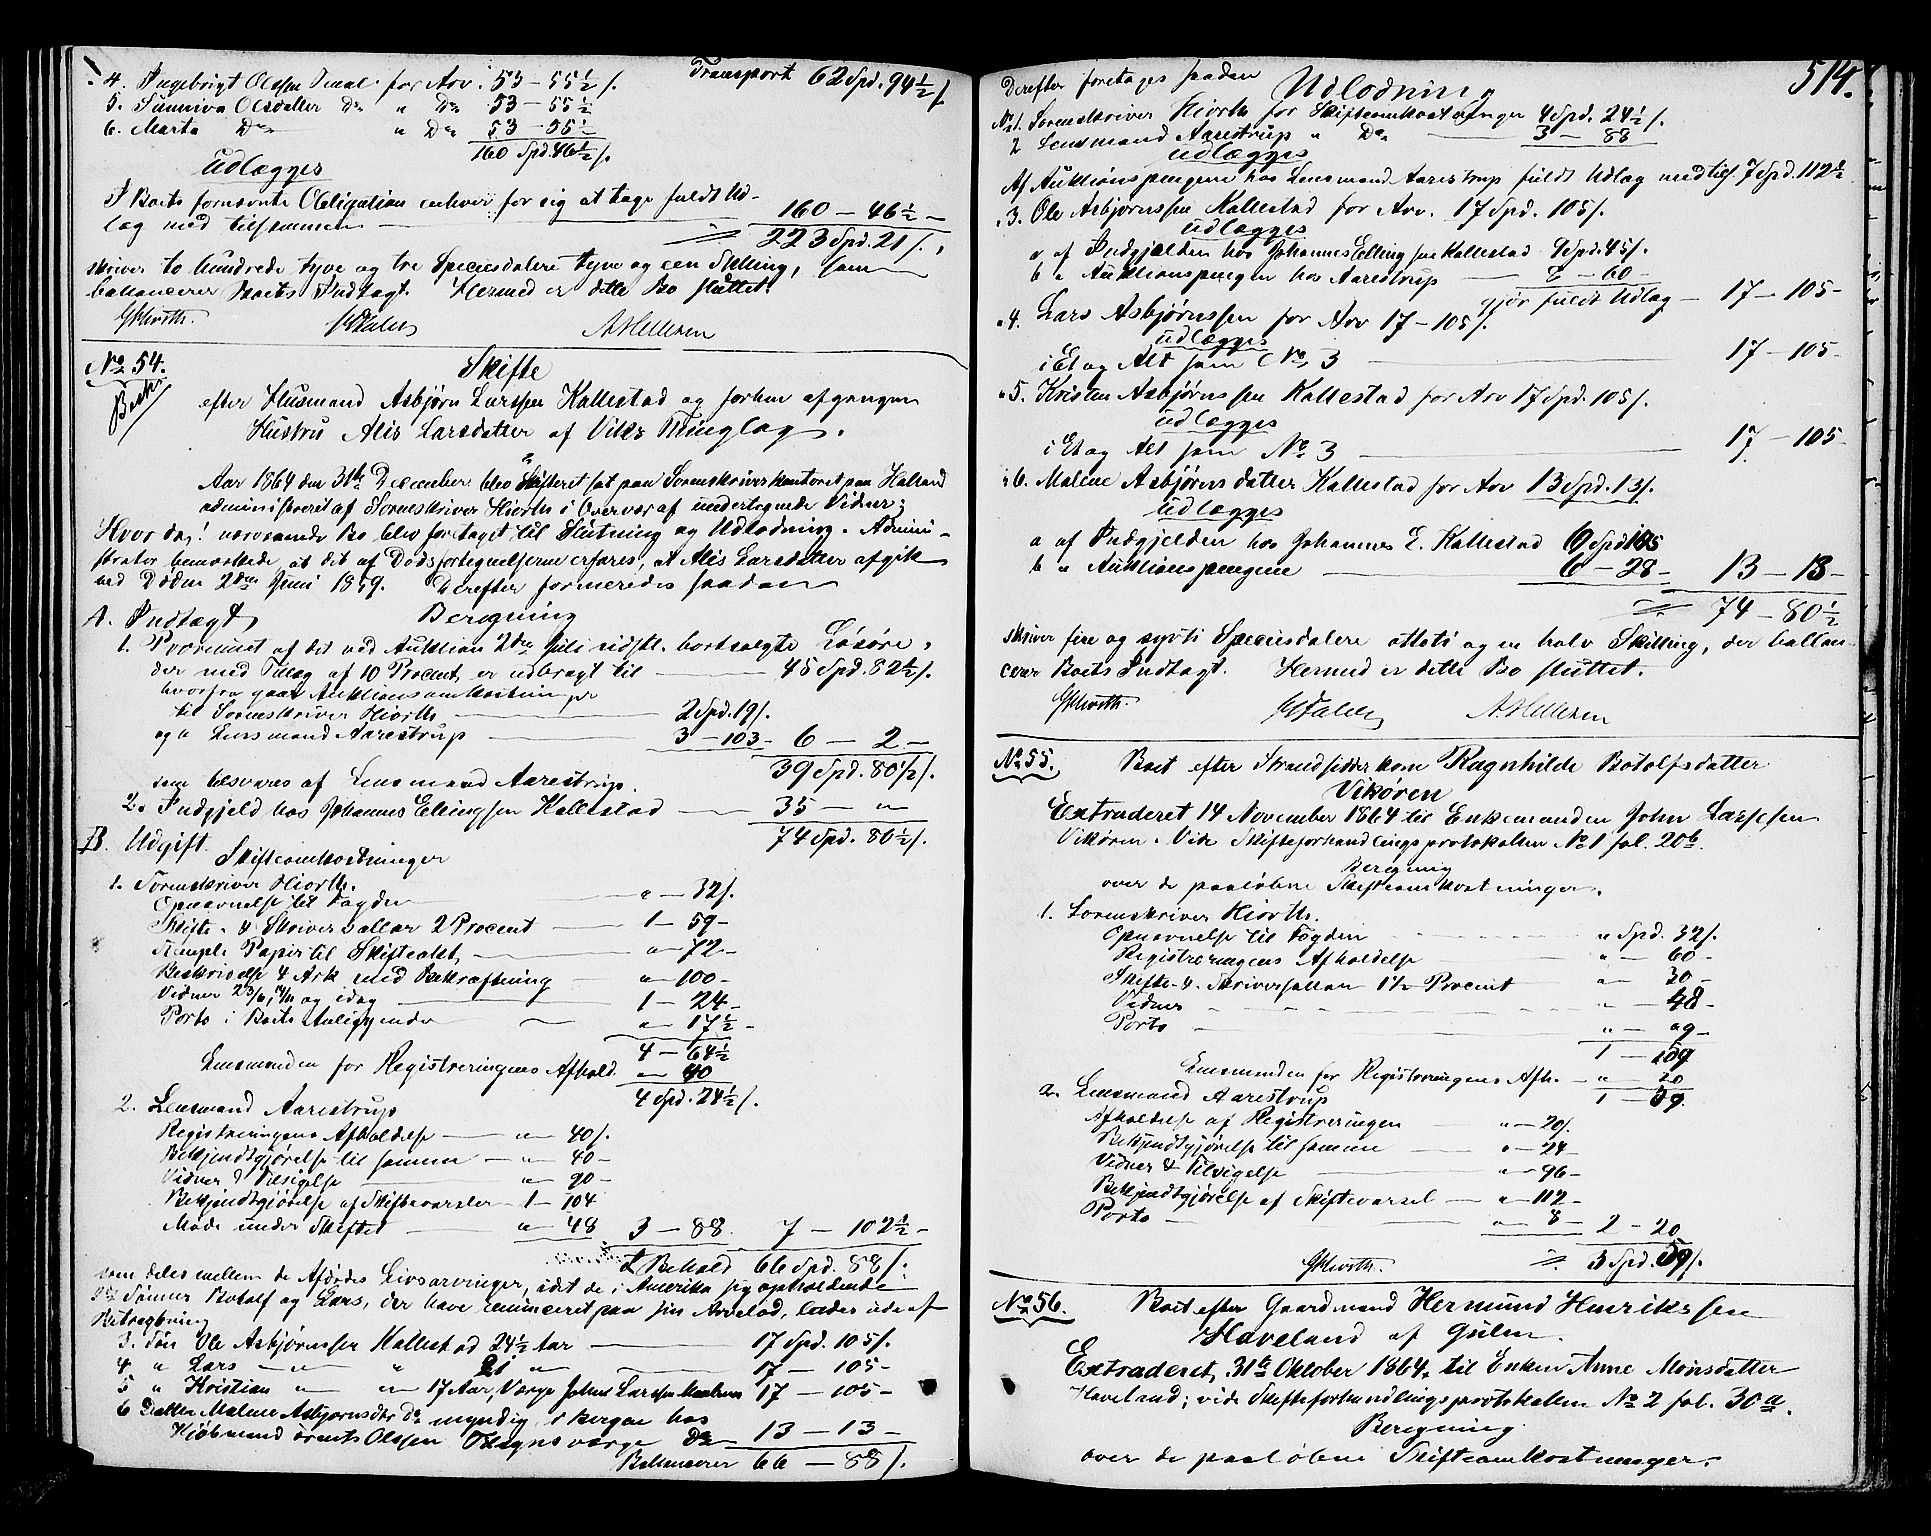 4. Ingebrigt Olssen for Arv. 53 – 55½ /. Transport 62 Spd. 94½ /.
5. Sunniva Olsdatter Do " Do 53 – 55½
6. Marta Do " Do 53 – 55½
160 Spd. 46½ /.
udlægges
I Boets fornævnte Obligation enhver for sig at tage fuldt Ud-
læg med tilsammen 160 – 46½ –
223 Spd. 21 /.
skriver to hundrede tyve og tre Speciesdalere tyve og een Skilling, som
ballancerer Boets Indtægt. Hermed er dette Bo sluttet.
GHiorth. A Hellesen
No 54. Skifte
efter Husmand Asbjørn Larssen Kallestad og forhen afgangen
Hustru Alis Larsdatter af Viks Thinglag.
Aar 1864 den 31te December blev Skifteret sat paa Sorenskriverkontoret paa Holland
administreret af Sorenskriver Hiorth i Overvær af undertegnede Vidner;
Hvorda! nærværende Bo blev foretaget til Slutning og Udlodning. Admini-
strator bemærkede, at det af Dødsfortegnelserne erfares, at Alis Larsdatter afgik
ved Døden 2den Juni 1859. Derefter formeredes saadan
A. Indtægt Beregning
1. Provenuet af det ved Auktion 2den Juli sidstl. bortsolgte Løsøre,
der med Tillæg af 10 Procent, er udbragt til 45 Spd. 82½ /.
hvorfra gaar Auktionsomkostninger
til Sorenskriver Hiorth 2 Spd. 19 /.
og " Lensmand Aarestrup 3 – 103 – 6 – 2 –
39 Spd. 80½ /.
som besvares af Lensmand Aarestrup.
2. Indgjeld hos Johannes Ellingsen Kallestad 35 – "
74 Spd. 80½ /.
B. Udgift. Skifteomkostninger
1. Sorenskriver Hiorth.
Opnævnelse til Fogden " – 32 /.
Skifte- & Skriversallær 2 Procent 1 – 59 –
Stemple Papir til Skifteakt, " – 72 –
Beskrivelse 4 Ark med Bekræftning " – 100 –
Vidner 23/6, og idag 1 – 24 –
Porto i Boets Anliggender " – 17½ –
4 – 64½
Lensmanden for Registreringens Afhold. " – 40
4 Spd. 24½ /.
2. Lensmand Aarestrup
Registreringens Afholdelse " – 40 /.
Bekjendtgjørelse til samme " – 40 –
Vidner & Tilsigelse " – 90 –
Bekjendtgjørelse af Skiftevarsler 1 – 104
Møde under Skiftet " – 48 3 – 88. 7 – 102½ –
I Behold 66 Spd. 88 /.
som deles mellem de Afdødes Livsarvinger, idet de i Amerika sig opholdende
Sønner Botolf og Lars, der have renunceret paa sin Arvelod, lades ude af
Betragtning
3. Søn Ole Asbjørnssen Kallestad 24½ Aar 17 Spd. 105 /.
4 " Lars " " 21 " 17 – 105 –
5 " Kristian " " 17 Aar, Værge Johns Larssen 17 – 105 –
6 Datter Malene Asbjørnsdtr Do myndig, i Bergen hos
Kjøbmand Olssen Tilsynsværge Do 13 – 13 –
Ballancerer 66 – 88 /.
514.
Derefter foretages saadan Udlodning
No 1. Sorenskriver Hiorth for Skifteomkostninger 4 Spd. 24½ /.
2 Lensmand Aarestrup " Do 3 – 88
udlægges
Af Auktionspengene hos Lensmand Aarestrup fuldt Udlæg med tils. 7 Spd. 112½
3. Ole Asbjørnssen Kallestad for Arv. 17 Spd. 105 /.
udlægges
a af Indgjelden hos Johannes Ellingsen Kallestad 9 Spd. 45 /.
b " Auktionspengene hos Aarestrup 8 – 60 –
gjør fuldt Udlæg – 17 – 105 –
4. Lars Asbjørnssen for Arv 17 – 105 /.
udlægges
i Et og Alt som No 3 17 – 105 –
5. Kristen Asbjørnssen Kallestad for Arv 17 Spd. 105 /.
udlægges
i Et og Alt som No 3 17 – 105 –
6. Malene Asbjørnsdatter Kallestad for Arv 13 Spd. 13 /.
udlægges
a af Indgjelden hos Johannes E. Kallestad 6 Spd 105
b " Auktionspengene 6 – 28 – 13 – 13 –
74 – 80½
skriver fire og sytti Speciesdalere otteti og en halv Skilling, der ballan-
cerer Boets Indtægt. Hermed er dette Bo sluttet.
GHiorth. A. Hellesen
No 55. Boet efter Strandsidderkone Ragnhilde Botolfsdatter
Vikøren
Extraderet 14 November 1864 til Enkemanden John Larssen
Vikøren. Vide Skifteforhandlingsprotokollen No 1 fol. 20b.
Beregning
over de paaløbne Skifteomkostninger.
1. Sorenskriver Hiorth.
Opnævnelse til Fogden " Spd. 32 /.
Registreringens Afholdelse " – 60 –
Skifte- & Skriversallær 1½ Procent " – 30 –
Vidner " – 48 –
Porto " – 09 –
1 – 59
Lensmanden for Registreringens Afh. – " – 20
1 – 39.
2. Lensmand Aarestrup
Afholdelse af Registreringen " – 20 /.
Bekjendtgjørelse til samme " – 24 –
Vidner & Tilsigelse " – 96 –
Bekjendtgjørelse af Skiftevarsel " – 112 –
Porto – " – 8 – 2 – 20
3 Spd. 59 /.
GHiorth.
No 56. Boet efter Gaardmand Hermund Henrikssen
Haveland af Gulen.
Extraderet, 31te Oktober 1864, til Enken Anne Monsdatter
Haveland; vide Skifteforhandlingsprotokollen No 2 fol. 30a.
Beregning
over de paaløbne Skifteomkostninger.